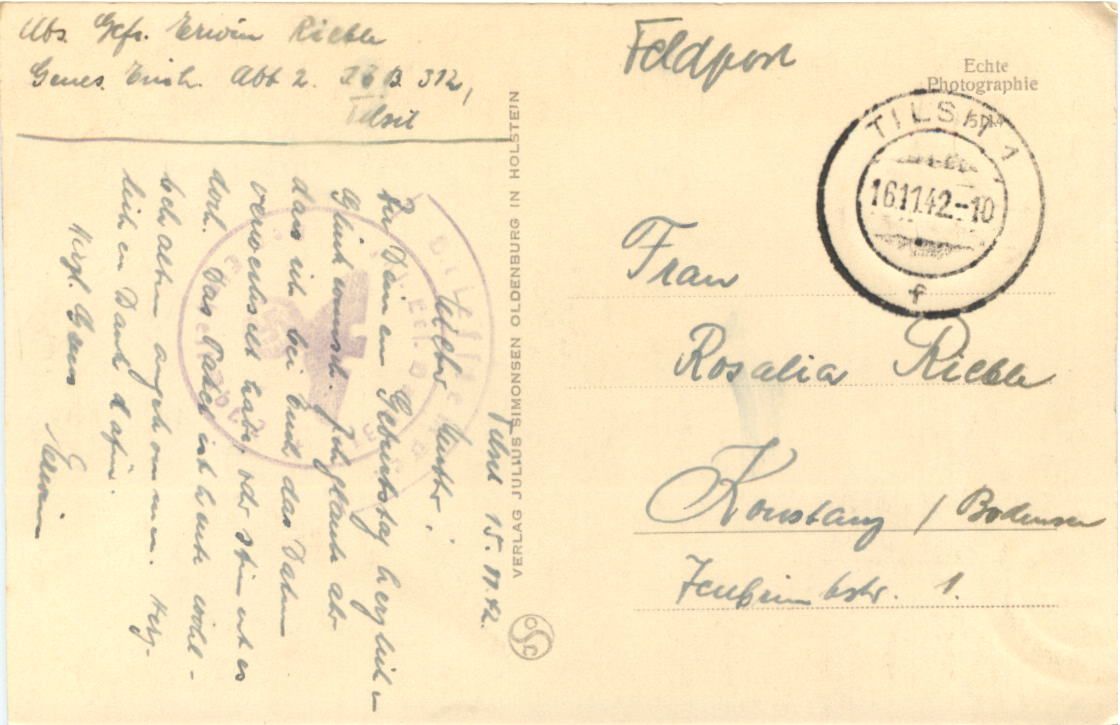 Abs. Gefr. Erwin Rieble
Genes. Abt 2. I.E.B. 312,
Tilsit
Feldpost
Echte
Photographie
TILSIT 1
16.11.42.-10
f
Frau
Rosalia Rieble
Konstanz / Bodensee
1.
VERLAG JULIUS SIMONSEN OLDENBURG IN HOLSTEIN
Tilsit 15.11.42.
Liebe Mutter!
Zu Deinem Geburtstag herzlichen
Glückwunsch. Ich glaube aber
dass ich bei Euch das Datum
verwechselt habe, oder stimmt es
doch. Das Paket ist heute wohl-
behalten angekommen. Herz-
lichen Dank dafür.
Herzl. Gruss
Erwin